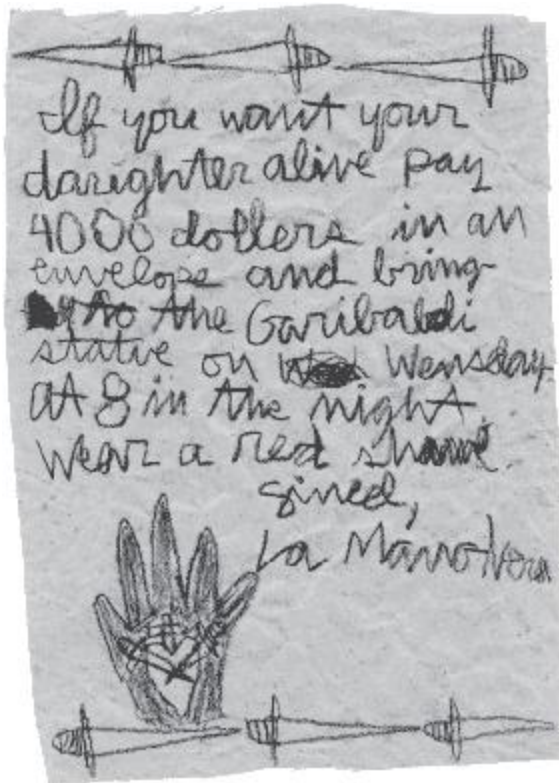 If you want your
darighter alive pay
4000 dollers in an
envelope and bring
to the Garibaldi
stative on Wensday
at 8 in the night.
Wear a red shawl.
sined,
La Mano Nera